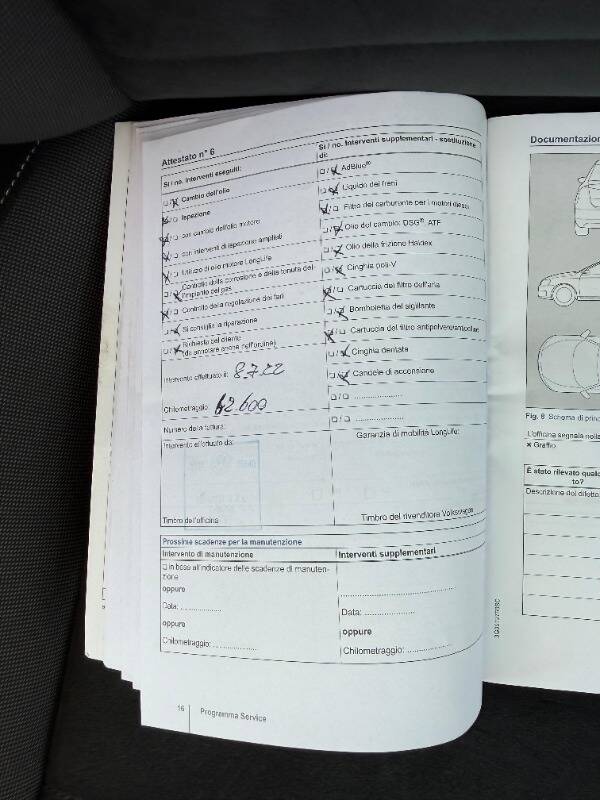 Attestato n° 6
Si / no. Interventi eseguiti:
☐/☒ Cambio dell'olio
Ispezione
☐ con cambio dell'olio motore
☐ con interventi di ispezione ampliati
☐ Utilizzo di olio motore LongLife
Controllo della corrosione e della tenuta dell'impianto del gas
☐ Controllo della regolazione dei fari
Si consiglia la riparazione
Richieste del cliente
(da annotare anche nell'ordine)
Intervento effettuato il: 8.7.22
Chilometraggio: 62600
Numero della fattura:
Intervento effettuato da:
Timbro dell'officina
Si / no. Interventi supplementari - sostituzione
di:
AdBlue®
Liquido dei freni
Filtro del carburante per i motori diesel
Olio del cambio: DSG® ATF
Olio della frizione Haldex
Cinghia poli-V
Cartuccia del filtro dell'aria
Bomboletta del sigillante
Cartuccia del filtro antipolvere/antipolline
Cinghia dentata
Candele di accensione
☐/☐ ....................
☐/☐ ....................
Garanzia di mobilità LongLife:
Timbro del rivenditore Volkswagen
Prossime scadenze per la manutenzione
Intervento di manutenzione
☐ in base all'indicatore delle scadenze di manuten-
zione
oppure
Data: ....................
oppure
Chilometraggio: ....................
Interventi supplementari
....................
Data: ....................
oppure
Chilometraggio: ....................
16 Programma Service
Documentazion
Fig. 8 Schema di princ
L'officina segnala nella
× Graffio
È stato rilevato qualc
to?
Descrizione del difetto